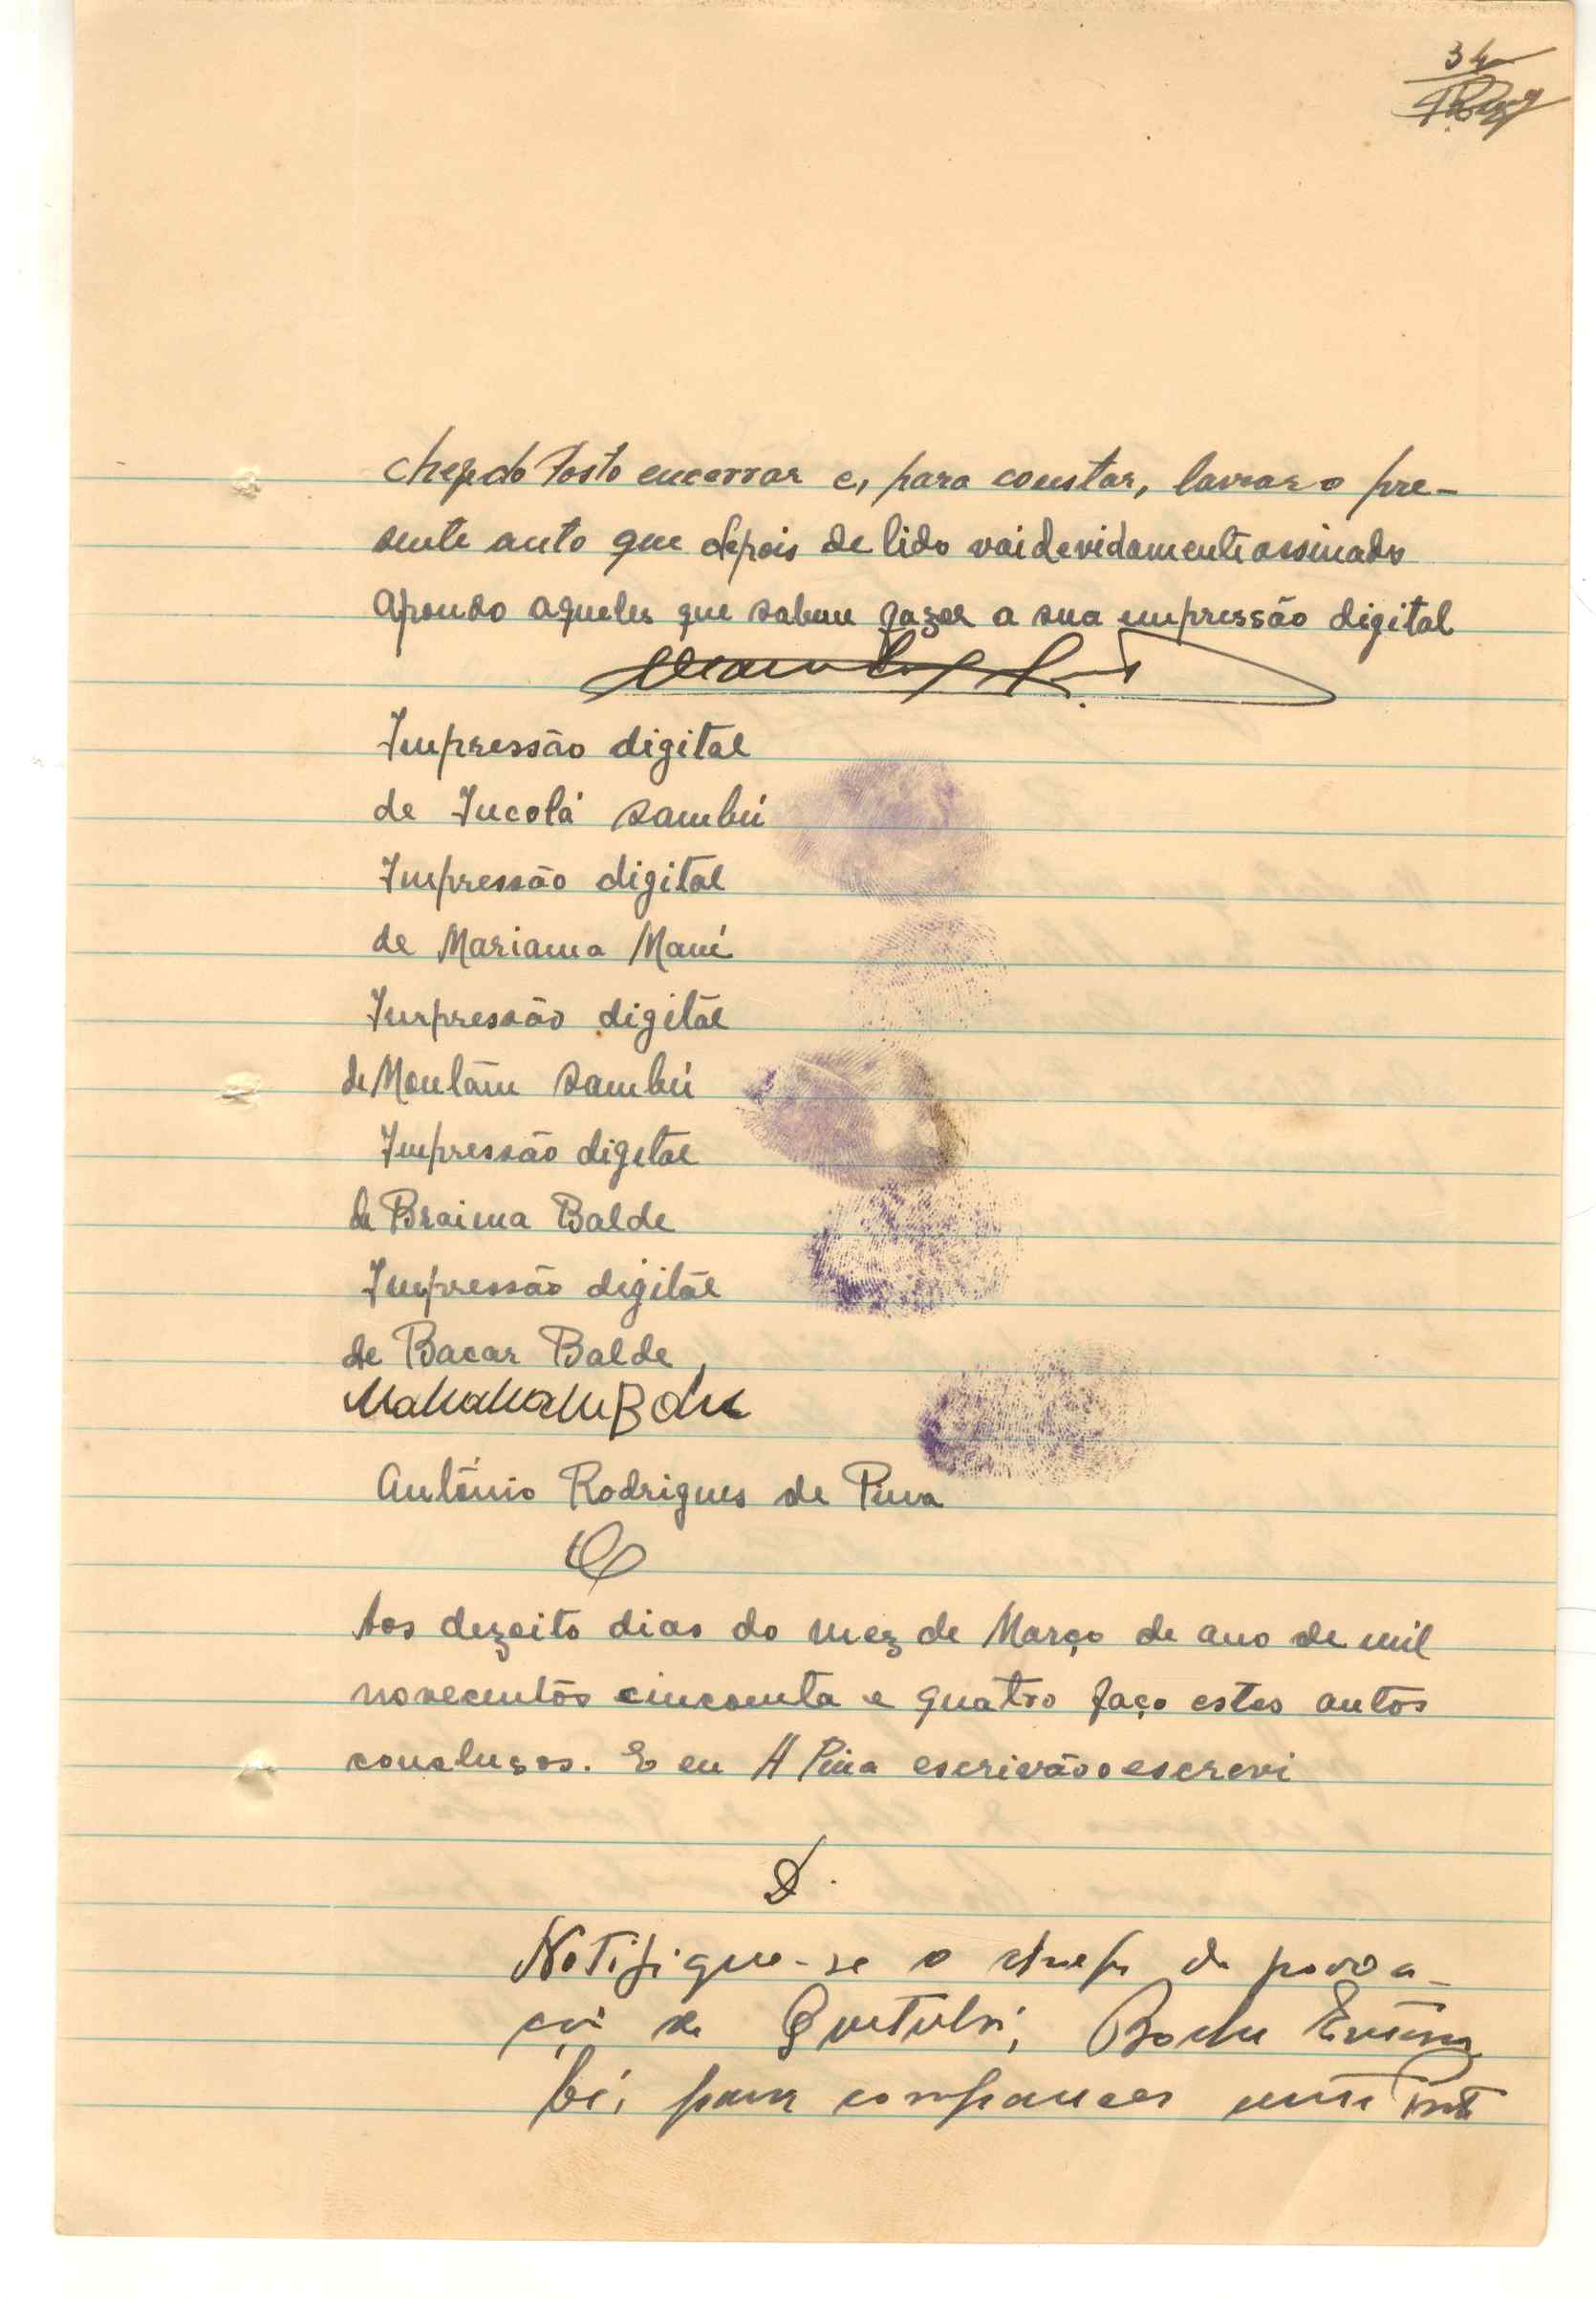 34
chefe do Posto encerrar e, para constar, lavrar o pre-
sente auto que depois de lido vai devidamente assinado
apondo aqueles que sabem fazer a sua impressão digital
Impressão digital
de Incolá Sambú
Impressão digital
de Mariama Mané
Impressão digital
de Montãm Sambú
Impressão digital
de Braima Balde
Impressão digital
de Bacar Balde
António Rodrigues de Pina
Aos dezoito dias do mez de Março de ano de mil
novecentos cincoenta e quatro faço estes autos
concluzos. E eu A Pina escrivão o escrevi
D.
Notifique-se o chefe da povoa-
ção de
bé, para comparecer neste Posto